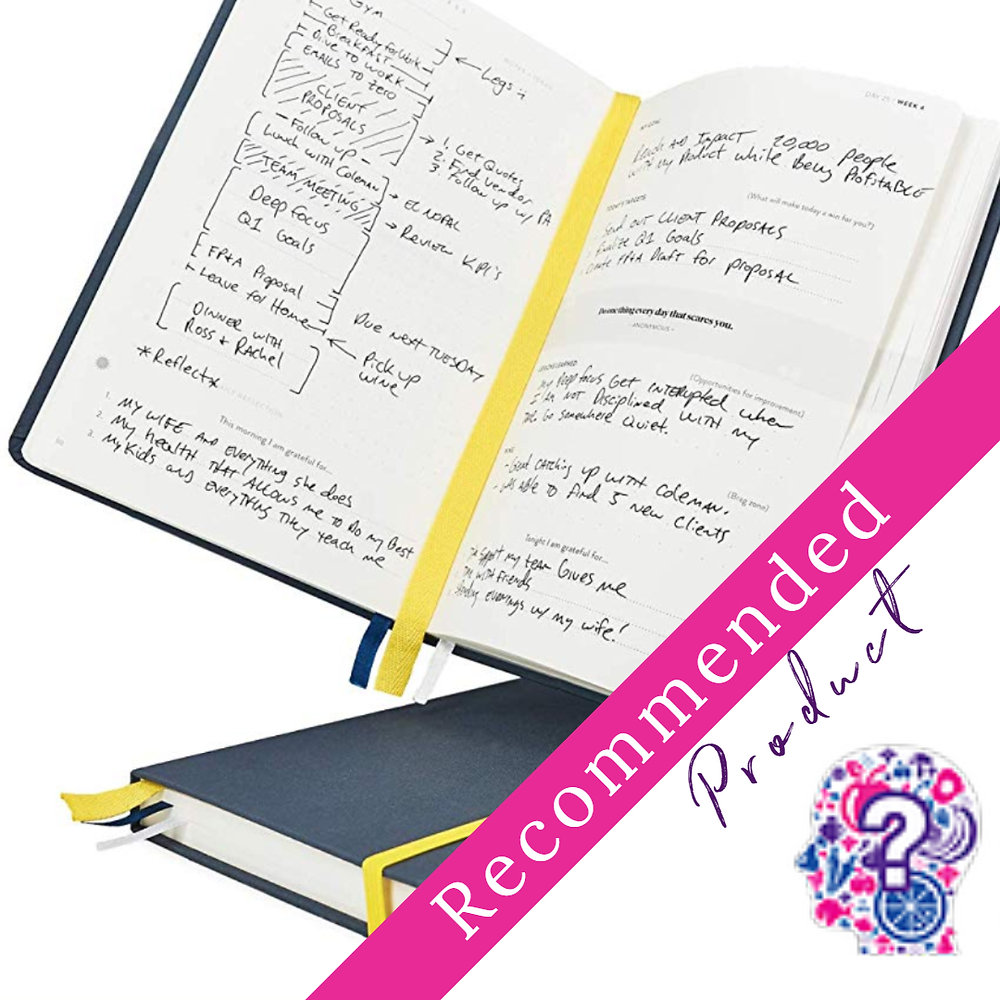 Gym
Get Ready for Work
Breakfast
Drive to Work
EMAILS TO Zero
CLIENT
PROPOSALS
Follow up
Lunch with Coleman
TEAM MEETING
Deep focus
Q1 Goals
FP+A Proposal
Leave for Home
DINNER WITH
ROSS + RACHEL
*Reflect*
← Legs
→ 1. Get Quotes
2. Find vendor
3. Follow up w/ PA
→ EL NOPAL
→ Review KPI's
Due next TUESDAY
Pick up
wine
NOTES + IDEAS
This morning I am grateful for...
1. MY WIFE AND EVERYTHING she does
2. My health THAT ALLOWS me to Do my Best
3. My Kids and EVERYTHING THEY Teach me
DAY 25 / WEEK 4
MY GOAL
Reach AND Impact 20,000 people
my Product while Being Profitable
TODAY'S TARGETS
(What will make today a win for you?)
Send out CLIENT Proposals
Finalize Q1 Goals
Create FP+A Draft for proposal
Do something every day that scares you.
- ANONYMOUS -
LESSONS LEARNED
(Opportunities for improvement)
My Deep focus GET INTERRUPTED when
I Am NOT Disciplined WITH my
Go somewhere Quiet.
(Brag zone)
- Great CATCHING up WITH Coleman.
- Was able to find 5 new clients
Tonight I am grateful for...
Support my TEAM Gives me
WITH friends
evenings w/ my wife!
Recommended
Product
?